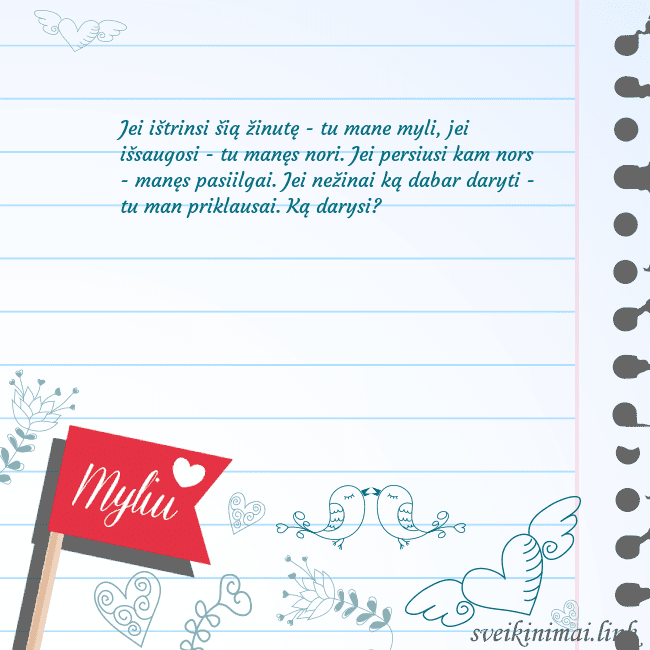 Jei ištrinsi šią žinutę - tu mane myli, jei
išsaugosi - tu manęs nori. Jei persiusi kam nors
- manęs pasiilgai. Jei nežinai ką dabar daryti -
tu man priklausai. Ką darysi?
Myliu
sveikinimai.link